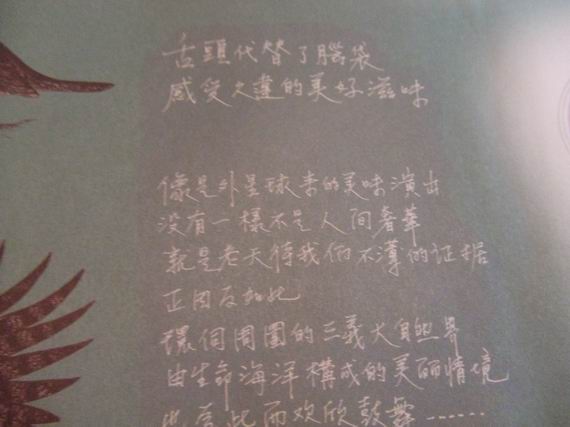 舌頭代替了腦袋
感受久違的美好滋味
像是外星球来的美味演出
没有一樣不是人间奢華
就是老天待我们不薄的证据
正因为如此
環伺周圍的三義大自然界
由生命海洋構成的美丽情境
也為此而欢欣鼓舞……